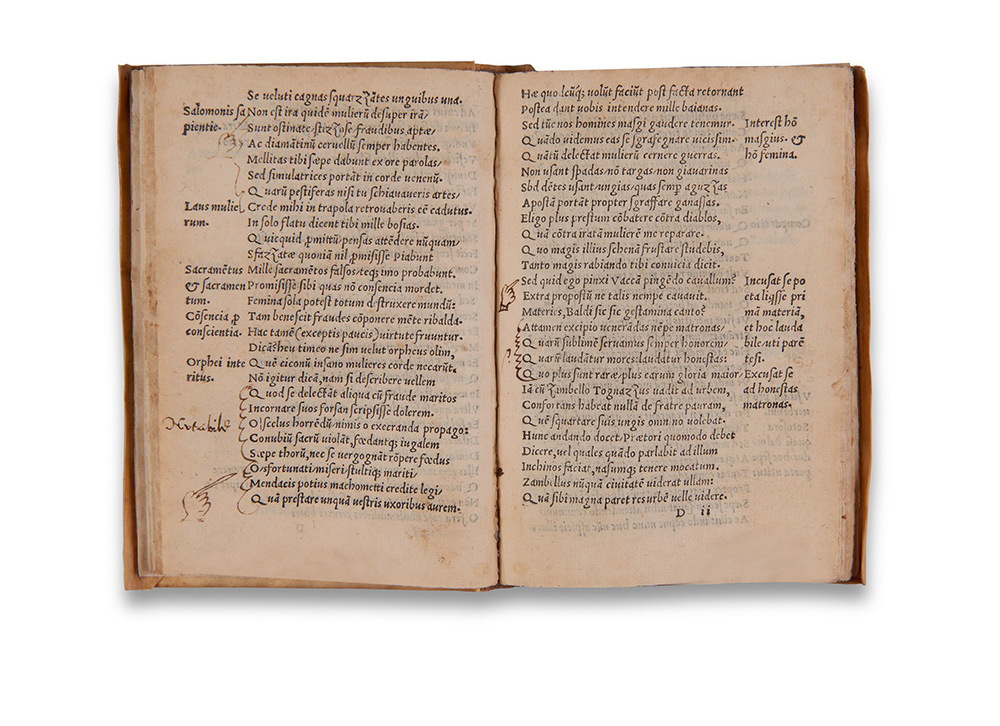 Se veluti cagnas squarzãtes unguibus una.
Salomonis sa
pientie.
Non est ira quidẽ mulierũ desuper irã/
Sunt ostinate/stizose/fraudibus aptæ/
Ac diamãtinũ cervellũ semper habentes.
Mellitas tibi sæpe dabunt ex ore parolas/
Sed simulatrices portãt in corde venenũ.
Quarũ pestiferas nisi tu schiavaveris artes/
Laus mulie
rum.
Crede mihi in trapola retrovaberis eẽ cadutus.
In solo flatu dicent tibi mille bosias.
Quicquid ꝓmittũt/pensas attẽdere nũquam/
Sfazzatæ quoniã nil ꝓmisisse piabunt
Sacramẽtus
& sacramen
tum.
Mille sacramẽtos falsos/teqꝫ imo probabunt.
Promisisse sibi quas nõ consencia mordet.
Femina sola potest totum dstruxere mundũ:
Cõsencia ꝓ
conscientia.
Tam bene scit fraudes cõponere mẽte ribalda.
Hac tamẽ (exceptis paucis) virtute fruuntur.
Dicã? heu timeo ne sim velut orpheus olim,
Orphei inte
ritus.
Quẽ ciconũ insano mulieres corde necarũt.
Nõ igitur dicã, nam si describere vellem
Quod se delectãt aliqua cũ fraude maritos
Incornare suos forsan scripsisse dolerem.
Notabile
O scelus horrẽdũ/nimis o execranda propago:
Conubiũ sacrũ violãt, fœdantqꝫ iugalem
Sæpe thorũ, nec se vergognãt rõpere fœdus
O/sfortunati/miseri/stultiqꝫ mariti/
Mendacis potius machometti credite legi/
Quã prestare unquã vestris uxoribus aurem.
D
Hæ quo lcũqꝫ volũt faciũt post facta retornant
Postea dant vobis intendere mille baianas.
Sed tũc nos homines masgi gaudere tenemur.
Quãdo videmus eas se sgrafegnare vicissim.
Quãtũ delectat mulierũ cernere guerras.
Interest hõ
masgius. &
hõ femina.
Non usant spadas/nõ targas/non giavarinas
Sbd dẽtes usant/ungias/quas semꝑ aguzzas
Apostã portãt propter sgraffare ganassas.
Eligo plus prestium cõbatere cõtra diablos,
Quã cõtra iratã mulierẽ me reparare.
Quo magis illius schenã frustare studebis,
Tanto magis rabiando tibi convicia dicit.
Sed quid ego pinxi Vaccã pingẽdo cavallum?
Extra propositũ ne talis nempe cavavit.
Materies, Baldi sic sic gestamina canto?
Attamen excipio venerãdas nẽpe matronas/
Quarũ sublimẽ servamus semper honorem/
Quarũ laudãtur mores: laudatur honestas:
Quo plus sunt raræ/plus earum gloria maior/
Incusat se po
eta liqsse pri
mã materiã,
et hoc lauda
bile/uti parẽ
tesi.
Excusat se
ad honestas
matronas.
Iã cũ Zambello Tognazzus vadit ad urbem,
Confortans habeat nullã de fratre pauram,
Quẽ squartare suis ungis omn no volebat.
Hunc andando docet/Prætori quomodo debet
Dicere, vel quales quãdo parlabit ad illum
Inchinos faciat, nasumqꝫ tenere mocatum.
Zambellus nũquã civitatẽ viderat ullam:
Quã sibi magna paret res urbẽ velle videre.
D ii